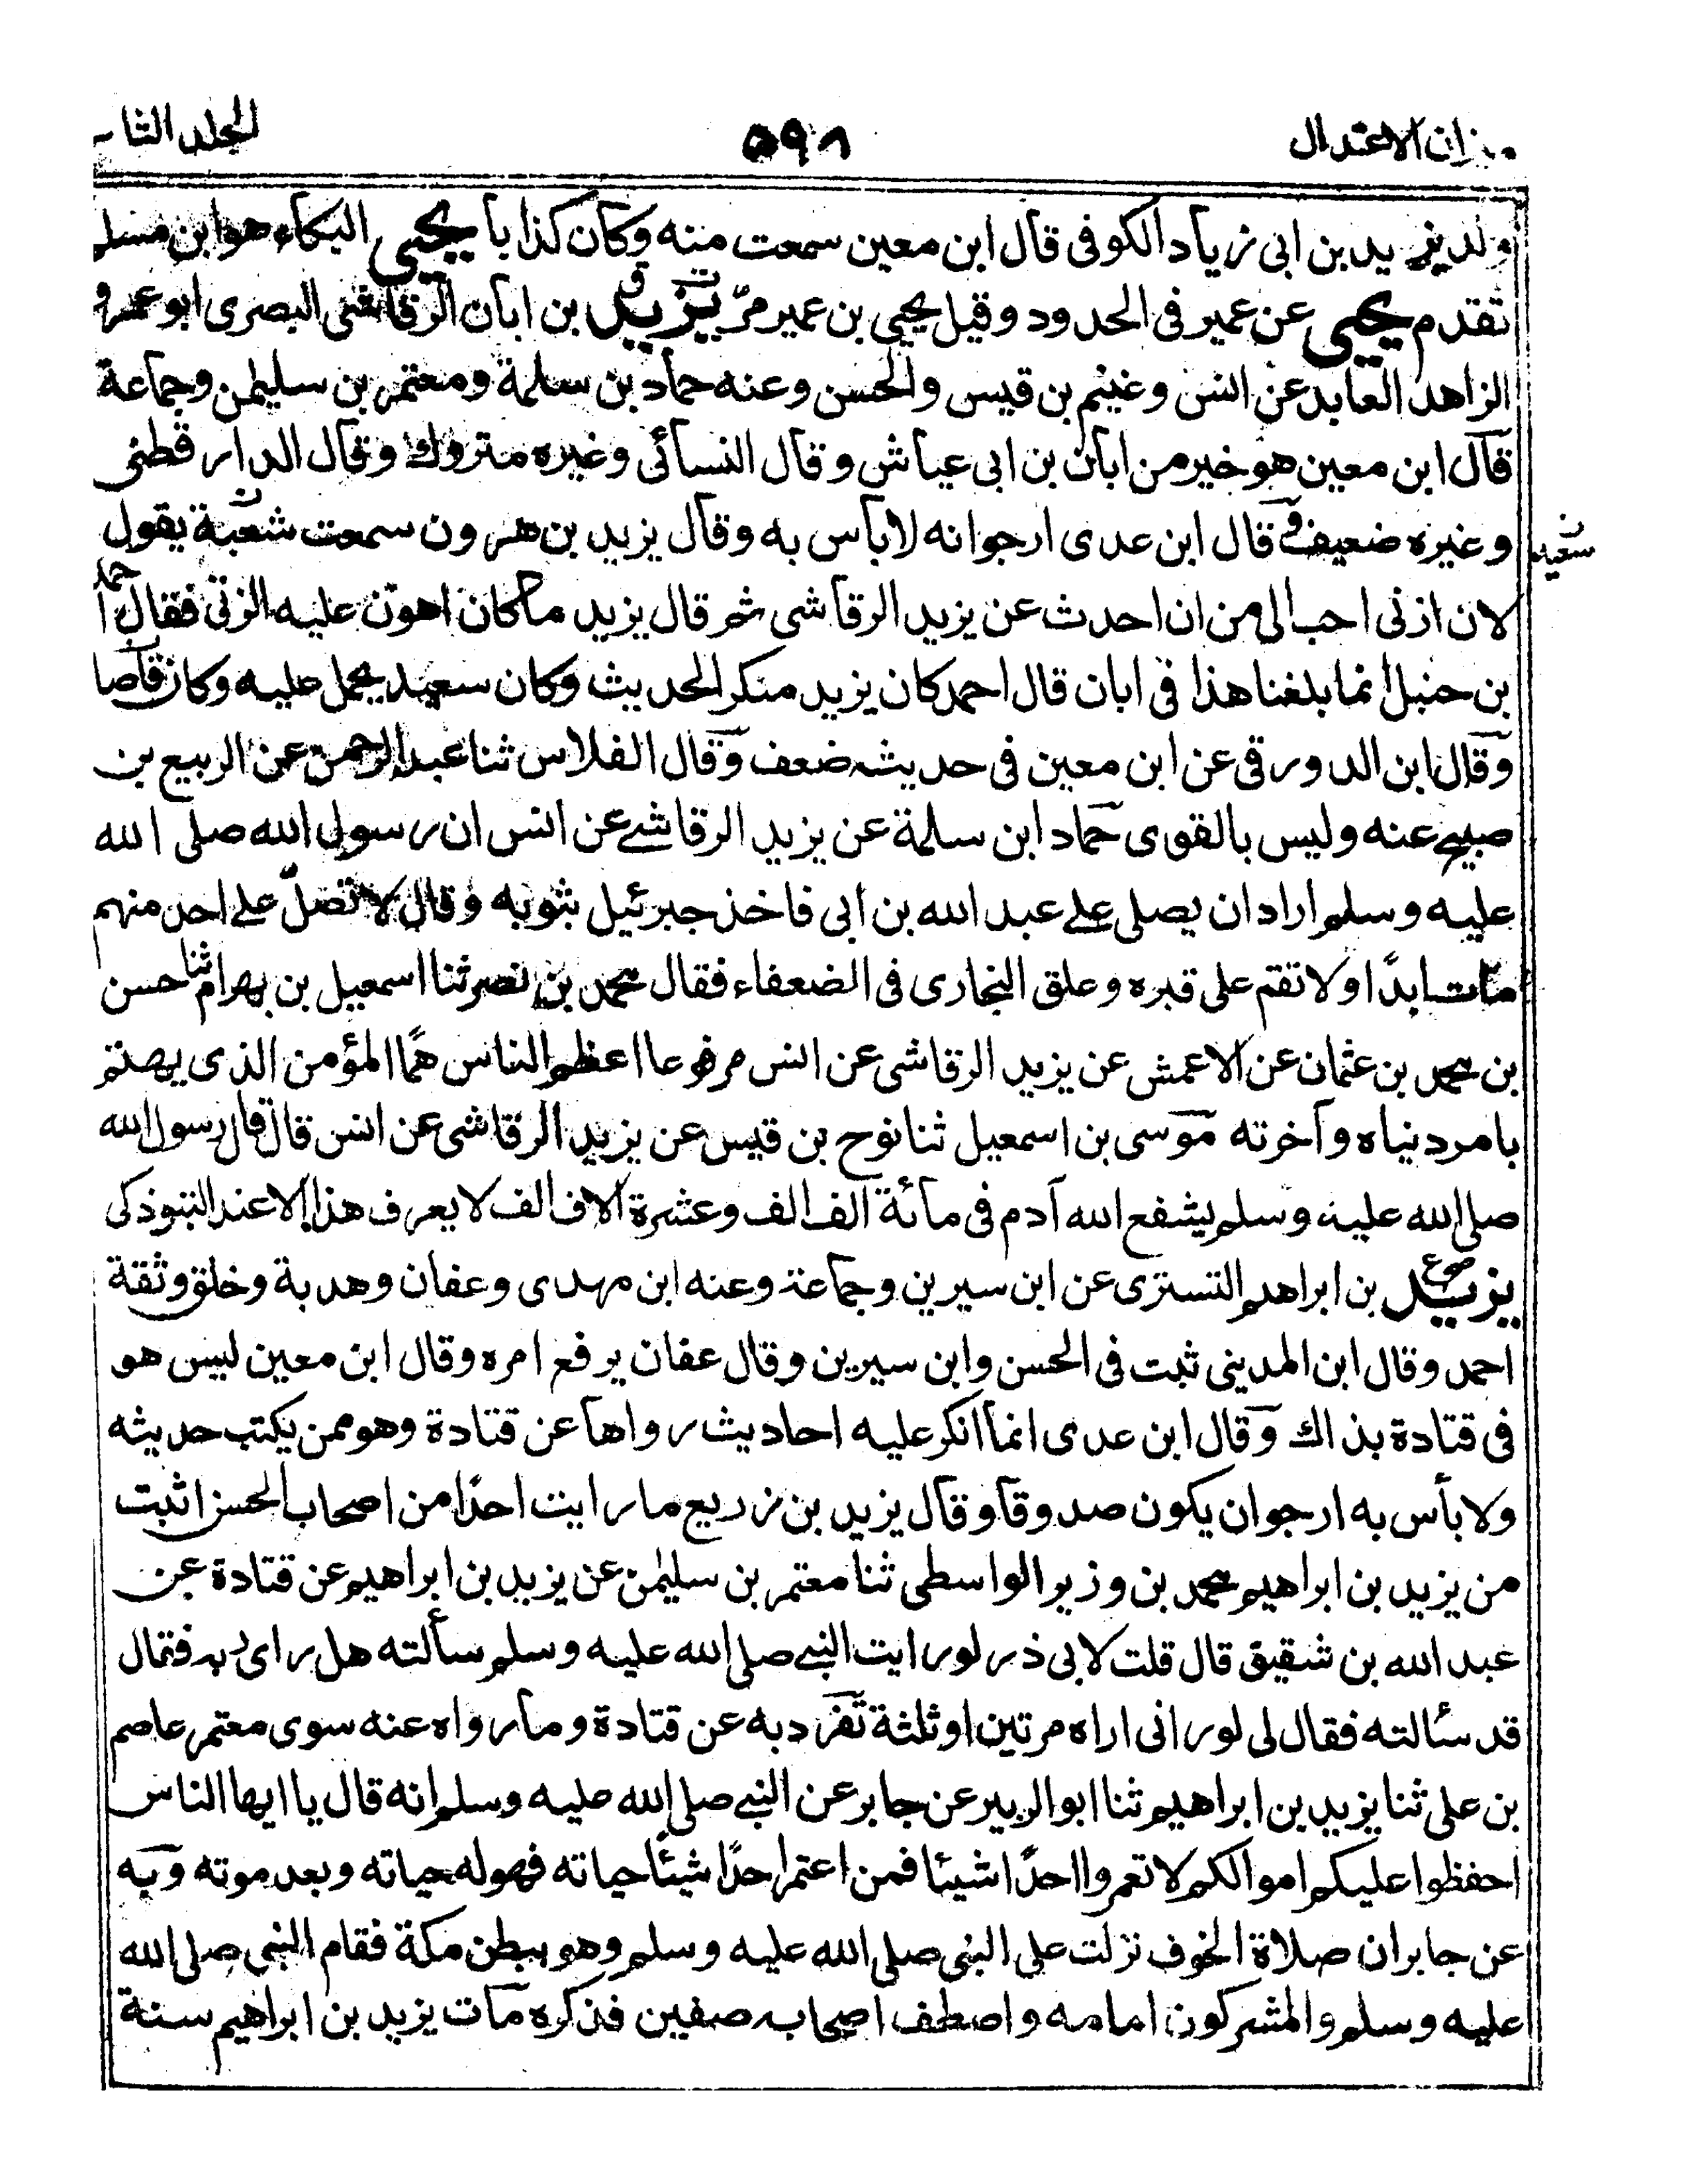 ميزان الاعتدال
٥٩٨
الجلد الثا
ولد يزيد بن ابى زياد الكوفى قال ابن معين سمعت منه وكان كذابا يحيى البكاء هو ابن مسلم
تقدم يحيى عن عمير فى الحدود وقيل يحيى بن عمير مرّ يزيد بن ابان الرقاشى البصرى ابو عمرو
الزاهد العابد عن انس وغنيم بن قيس والحسن وعنه حماد بن سلمة ومعتمر بن سليمن وجماعة
قال ابن معين هو خير من ابان بن ابى عياش وقال النسائى وغيره متروك وقال الدارقطنى
وغيره ضعيف قال ابن عدى ارجو انه لا باس به وقال يزيد بن هرون سمعت شعبة يقول
سعيد
لان ازنى احب الى من ان احدث عن يزيد الرقاشى ثم قال يزيد ما كان اهون عليه الزنى فقال احمد
بن حنبل انما بلغنا هذا فى ابان قال احمد كان يزيد منكر الحديث وكان سعيد يحمل عليه وكان قاصا
وقال ابن الدورقى عن ابن معين فى حديثه ضعف وقال الفلاس ثنا عبد الرحمن عن الربيع بن
صبيح عنه وليس بالقوى حماد ابن سلمة عن يزيد الرقاشے عن انس ان رسول الله صلى الله
عليه وسلم اراد ان يصلى علے عبد الله بن ابى فاخذ جبرئيل بثوبه وقال لا تصلّ علے احد منهم
مات ابدًا ولا تقم على قبره وعلق البخارى فى الضعفاء فقال محمد بن نصر ثنا اسمعيل بن بهرام ثنا حسن
بن محمد بن عثمان عن الاعمش عن يزيد الرقاشى عن انس مرفوعا اعظم الناس همًّا المؤمن الذى يهتم
بامر دنياه وآخرته موسى بن اسمعيل ثنا نوح بن قيس عن يزيد الرقاشى عن انس قال قال رسول الله
صلى الله عليه وسلم يشفع الله آدم فى مائة الف الف وعشرة آلاف الف لا يعرف هذا الا عند التبوذكى
يزيد بن ابراهيم التسترى عن ابن سيرين وجماعة وعنه ابن مهدى وعفان وهدبة وخلق وثقة
احمد وقال ابن المدينى ثبت فى الحسن وابن سيرين وقال عفان يرفع امره وقال ابن معين ليس هو
فى قتادة بذاك وقال ابن عدى انما انكر عليه احاديث رواها عن قتادة وهو ممن يكتب حديثه
ولا بأس به ارجو ان يكون صدوقا وقال يزيد بن زريع ما رايت احدًا من اصحاب الحسن اثبت
من يزيد بن ابراهيم محمد بن وزير الواسطى ثنا معتمر بن سليمن عن يزيد بن ابراهيم عن قتادة عن
عبد الله بن شقيق قال قلت لابى ذر لو رايت النبے صلى الله عليه وسلم سألته هل راى ربه فقال
قد سئالته فقال لى نور انى اراه مرتين او ثلثة تفرد به عن قتادة وما رواه عنه سوى معتمر عاصم
بن على ثنا يزيد بن ابراهيم ثنا ابو الزبير عن جابر عن النبے صلى الله عليه وسلم انه قال يا ايها الناس
احفظوا عليكم اموالكم لا تعمروا احدًا شيئا فمن اعتمر احدًا شيئًا حياته فهو له حياته وبعد موته وبه
عن جابر ان صلاة الخوف نزلت على النبى صلى الله عليه وسلم وهو ببطن مكة فقام النبى صلى الله
عليه وسلم والمشركون امامه واصطف اصحابه صفين فذكره مات يزيد بن ابراهيم سنة